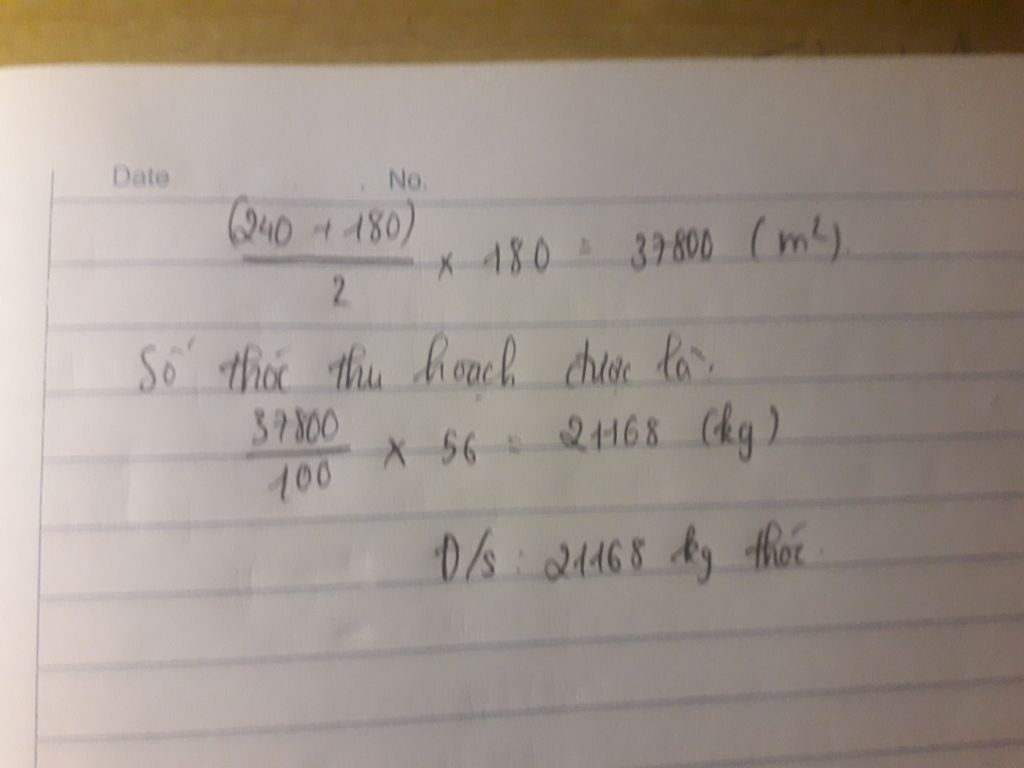 Date No.
(240 + 180) / 2 × 180 = 37800 (m²).
Số thóc thu hoạch được là:
37800 / 100 × 56 = 21168 (kg)
Đ/s: 21168 kg thóc.